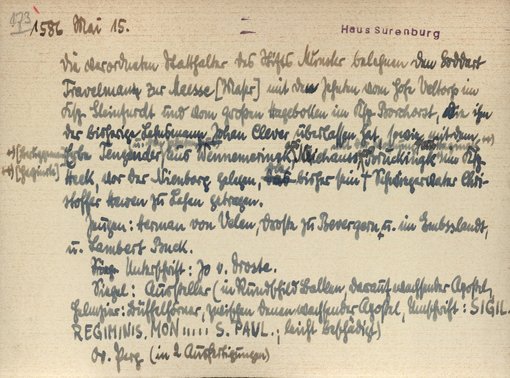 173
1586 Mai 15.
Haus Surenburg
Die verordneten Statthalter des Stifts Münster belehnen den Goddert
Travelmann zur Meesse [Maser] mit dem Zehnten vom Hofe Veltorp im
Ksp. Steinfurdt und vom großen Hagebollen im Ksp. Borchorst, die ihm
der bisherige Lehnsmann Johan Clever überlassen hat, sowie mit dem
Erbe Tengünder aus Wennemerinck, Wichmans, Bruckinck im Ksp.
Heek, vor der Nienborg gelegen, bisher sein † Schwiegervater Chri-
stoffer Hawen zu Lehen getragen.
Zeugen: Herman von Velen, Droste zu Bevergern u. im Embslandt,
u. Lambert Buck.
Unterschrift: Jo v. Droste.
Siegel: Aussteller (in Rundschild Balken, darauf wachsender Apostel,
Helmzier: Büffelhörner, zwischen denen wachsender Apostel, Umschrift: SIGIL.
REGIMINIS. MON ..... S. PAUL.; leicht beschädigt)
Or. Perg. (in 2 Ausfertigungen)